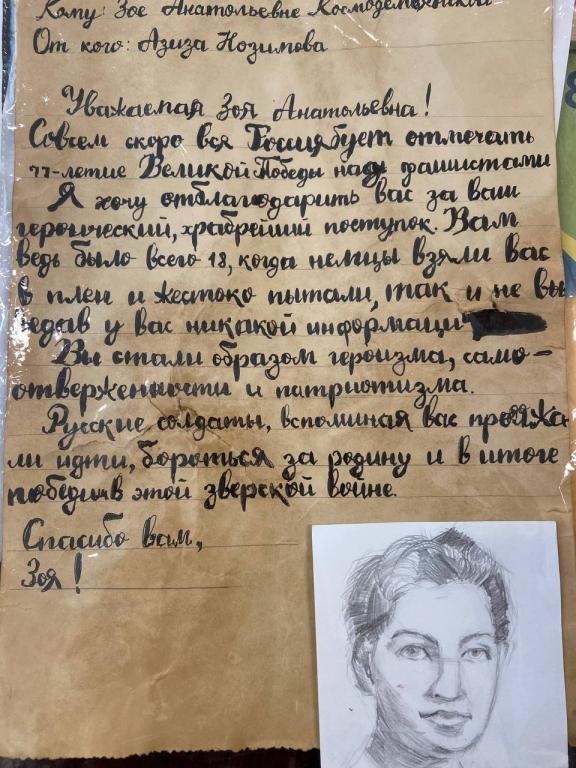 Кому: Зое Анатольевне Космодемьянской
От кого: Азиза Нозимова
Уважаемая Зоя Анатольевна!
Совсем скоро вся Россия будет отмечать
77-летие Великой Победы над фашистами
Я хочу отблагодарить вас за ваш
героический, храбрейший поступок. Вам
ведь было всего 18, когда немцы взяли вас
в плен и жестоко пытали, так и не вы
ведав у вас никакой информаци
Вы стали образом героизма, само-
отверженности и патриотизма.
Русские солдаты, вспоминая вас продолжа
ли идти, бороться за родину и в итоге
победив в этой зверской войне.
Спасибо вам,
Зоя!